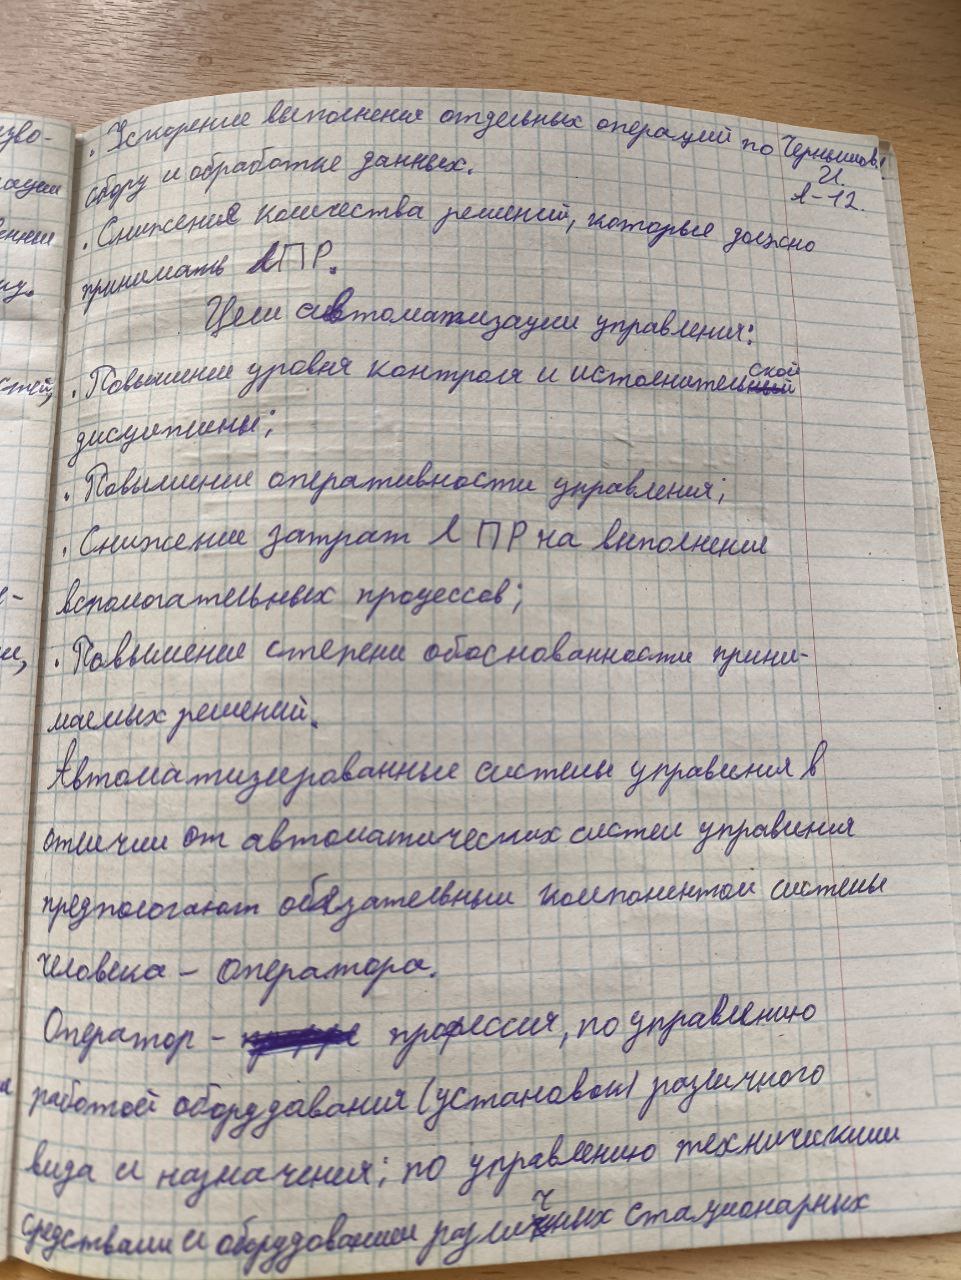 зво-
ации
ении
стей,
. Ускорение выполнения отдельных операций по
Чернышов
И.
Л-12.
сбору и обработке данных.
. Снижение количества решений, которые должно
принимать ЛПР.
Цели автоматизации управления:
. Повышение уровня контроля и исполнительской
дисциплины;
. Повышение оперативности управления;
. Снижение затрат ЛПР на выполнения
вспомогательных процессов;
. Повышение степени обоснованности прини-
маемых решений.
Автоматизированные системы управления в
отличии от автоматических систем управления
предпологают обязательным компонентом системы
человека – оператора.
Оператор – профессия, по управлению
работой оборудования (установок) различного
вида и назначения; по управлению техническими
средствами и оборудованием различных стационарных